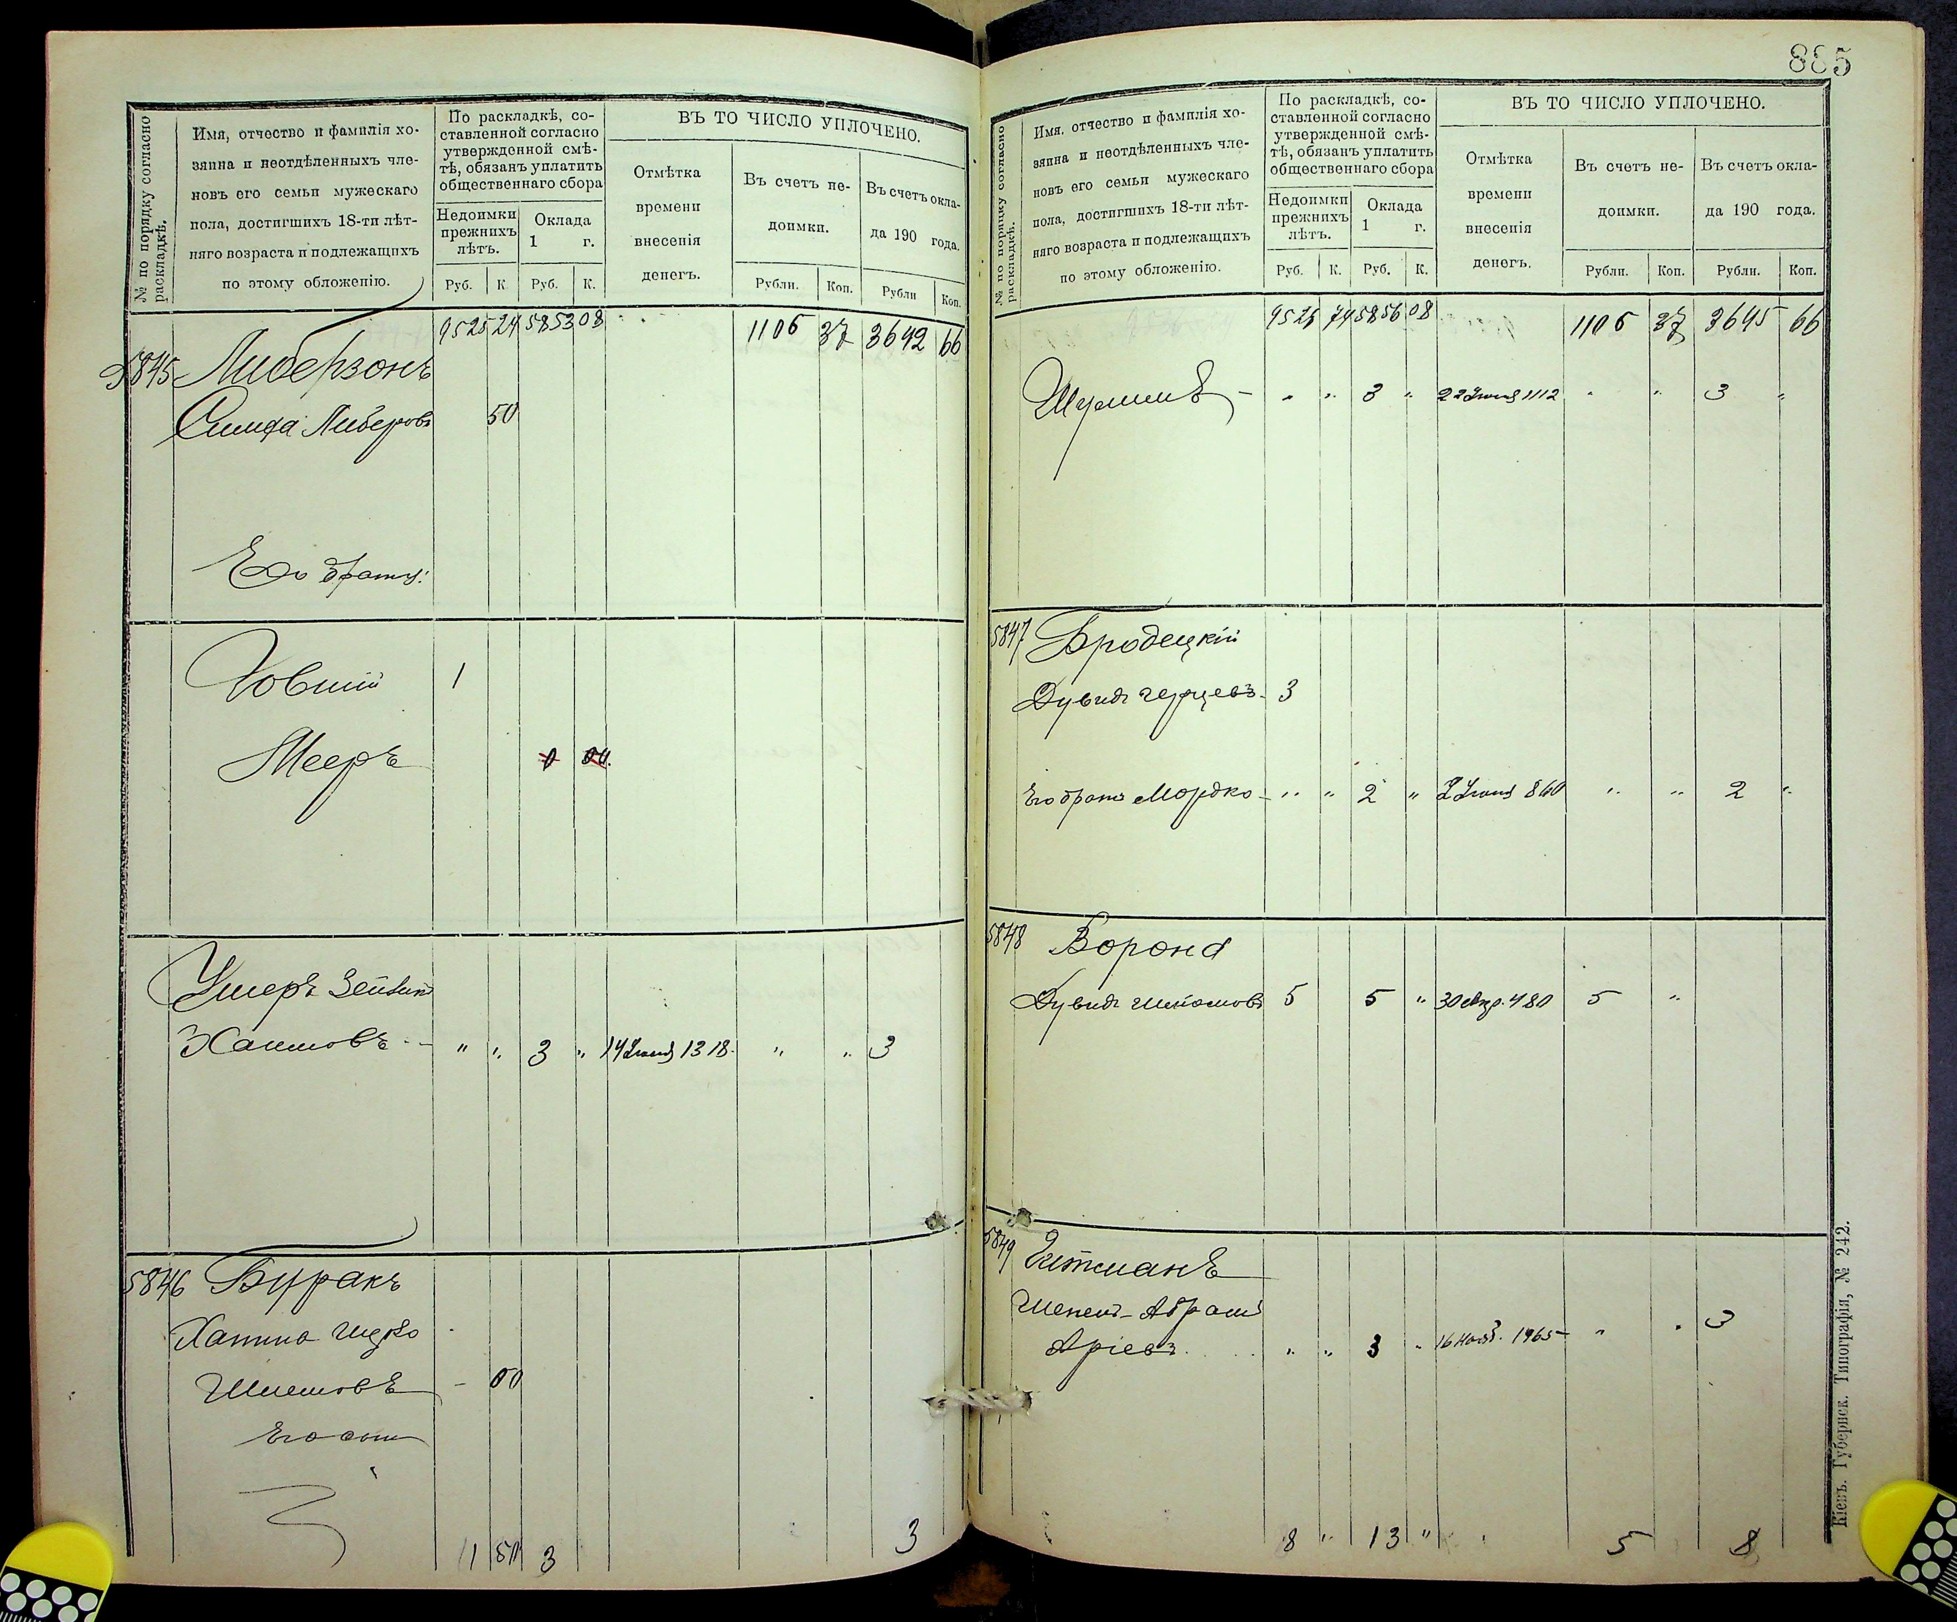 885
№ по порядку согласно раскладкѣ.
Имя, отчество и фамилія хо-
зяина и неотдѣленныхъ чле-
новъ его семьи мужескаго
пола, достигшихъ 18-ти лѣт-
няго возраста и подлежащихъ
по этому обложенію.
По раскладкѣ, со-
ставленной согласно
утвержденной смѣ-
тѣ, обязанъ уплатить
общественнаго сбора
Недоимки
прежнихъ
лѣтъ.
Оклада
1 г.
Руб. К. Руб. К.
ВЪ ТО ЧИСЛО УПЛОЧЕНО.
Отмѣтка
времени
внесенія
денегъ.
Въ счетъ не-
доимки.
Въ счетъ окла-
да 190 года.
Рубли. Коп. Рубли Коп.
9525 24 5853 08 1106 37 3642 66
5845 Либерзонъ
Симха Либеровъ 50
Его братъ:
Іовшій 1
Мееръ
Ушеръ Зейвикъ
Хаимовъ - " " 3 " 14 Іюня 1318. " " 3
5846 Буракъ
Хаимъ Ицко
Шлемовъ - 50
Его сынъ
1 50 3 3
№ по порядку согласно раскладкѣ.
Имя, отчество и фамилія хо-
зяина и неотдѣленныхъ чле-
новъ его семьи мужескаго
пола, достигшихъ 18-ти лѣт-
няго возраста и подлежащихъ
по этому обложенію.
По раскладкѣ, со-
ставленной согласно
утвержденной смѣ-
тѣ, обязанъ уплатить
общественнаго сбора
Недоимки
прежнихъ
лѣтъ.
Оклада
1 г.
Руб. К. Руб. К.
ВЪ ТО ЧИСЛО УПЛОЧЕНО.
Отмѣтка
времени
внесенія
денегъ.
Въ счетъ не-
доимки.
Въ счетъ окла-
да 190 года.
Рубли. Коп. Рубли. Коп.
9526 74 5856 08 1106 37 3645 66
Шулимъ - " " 3 " 22 Іюня 1112 " " 3 "
5847 Бродецкій
Дувидъ Герцевъ. 3
Его братъ Мордко - " " 2 " 2 Іюня 860 " " 2 "
5848 Ворона
Дувидъ Шлiомовъ 5 5 " 30 Апр. 480 5 "
5849 Гитманъ
Шепсель-Абрамъ
Аріевъ. " " 3 " 16 Нояб. 1965 " " 3
8 " 13 " 5 8
Кіевъ. Губернск. Типографія, № 242.